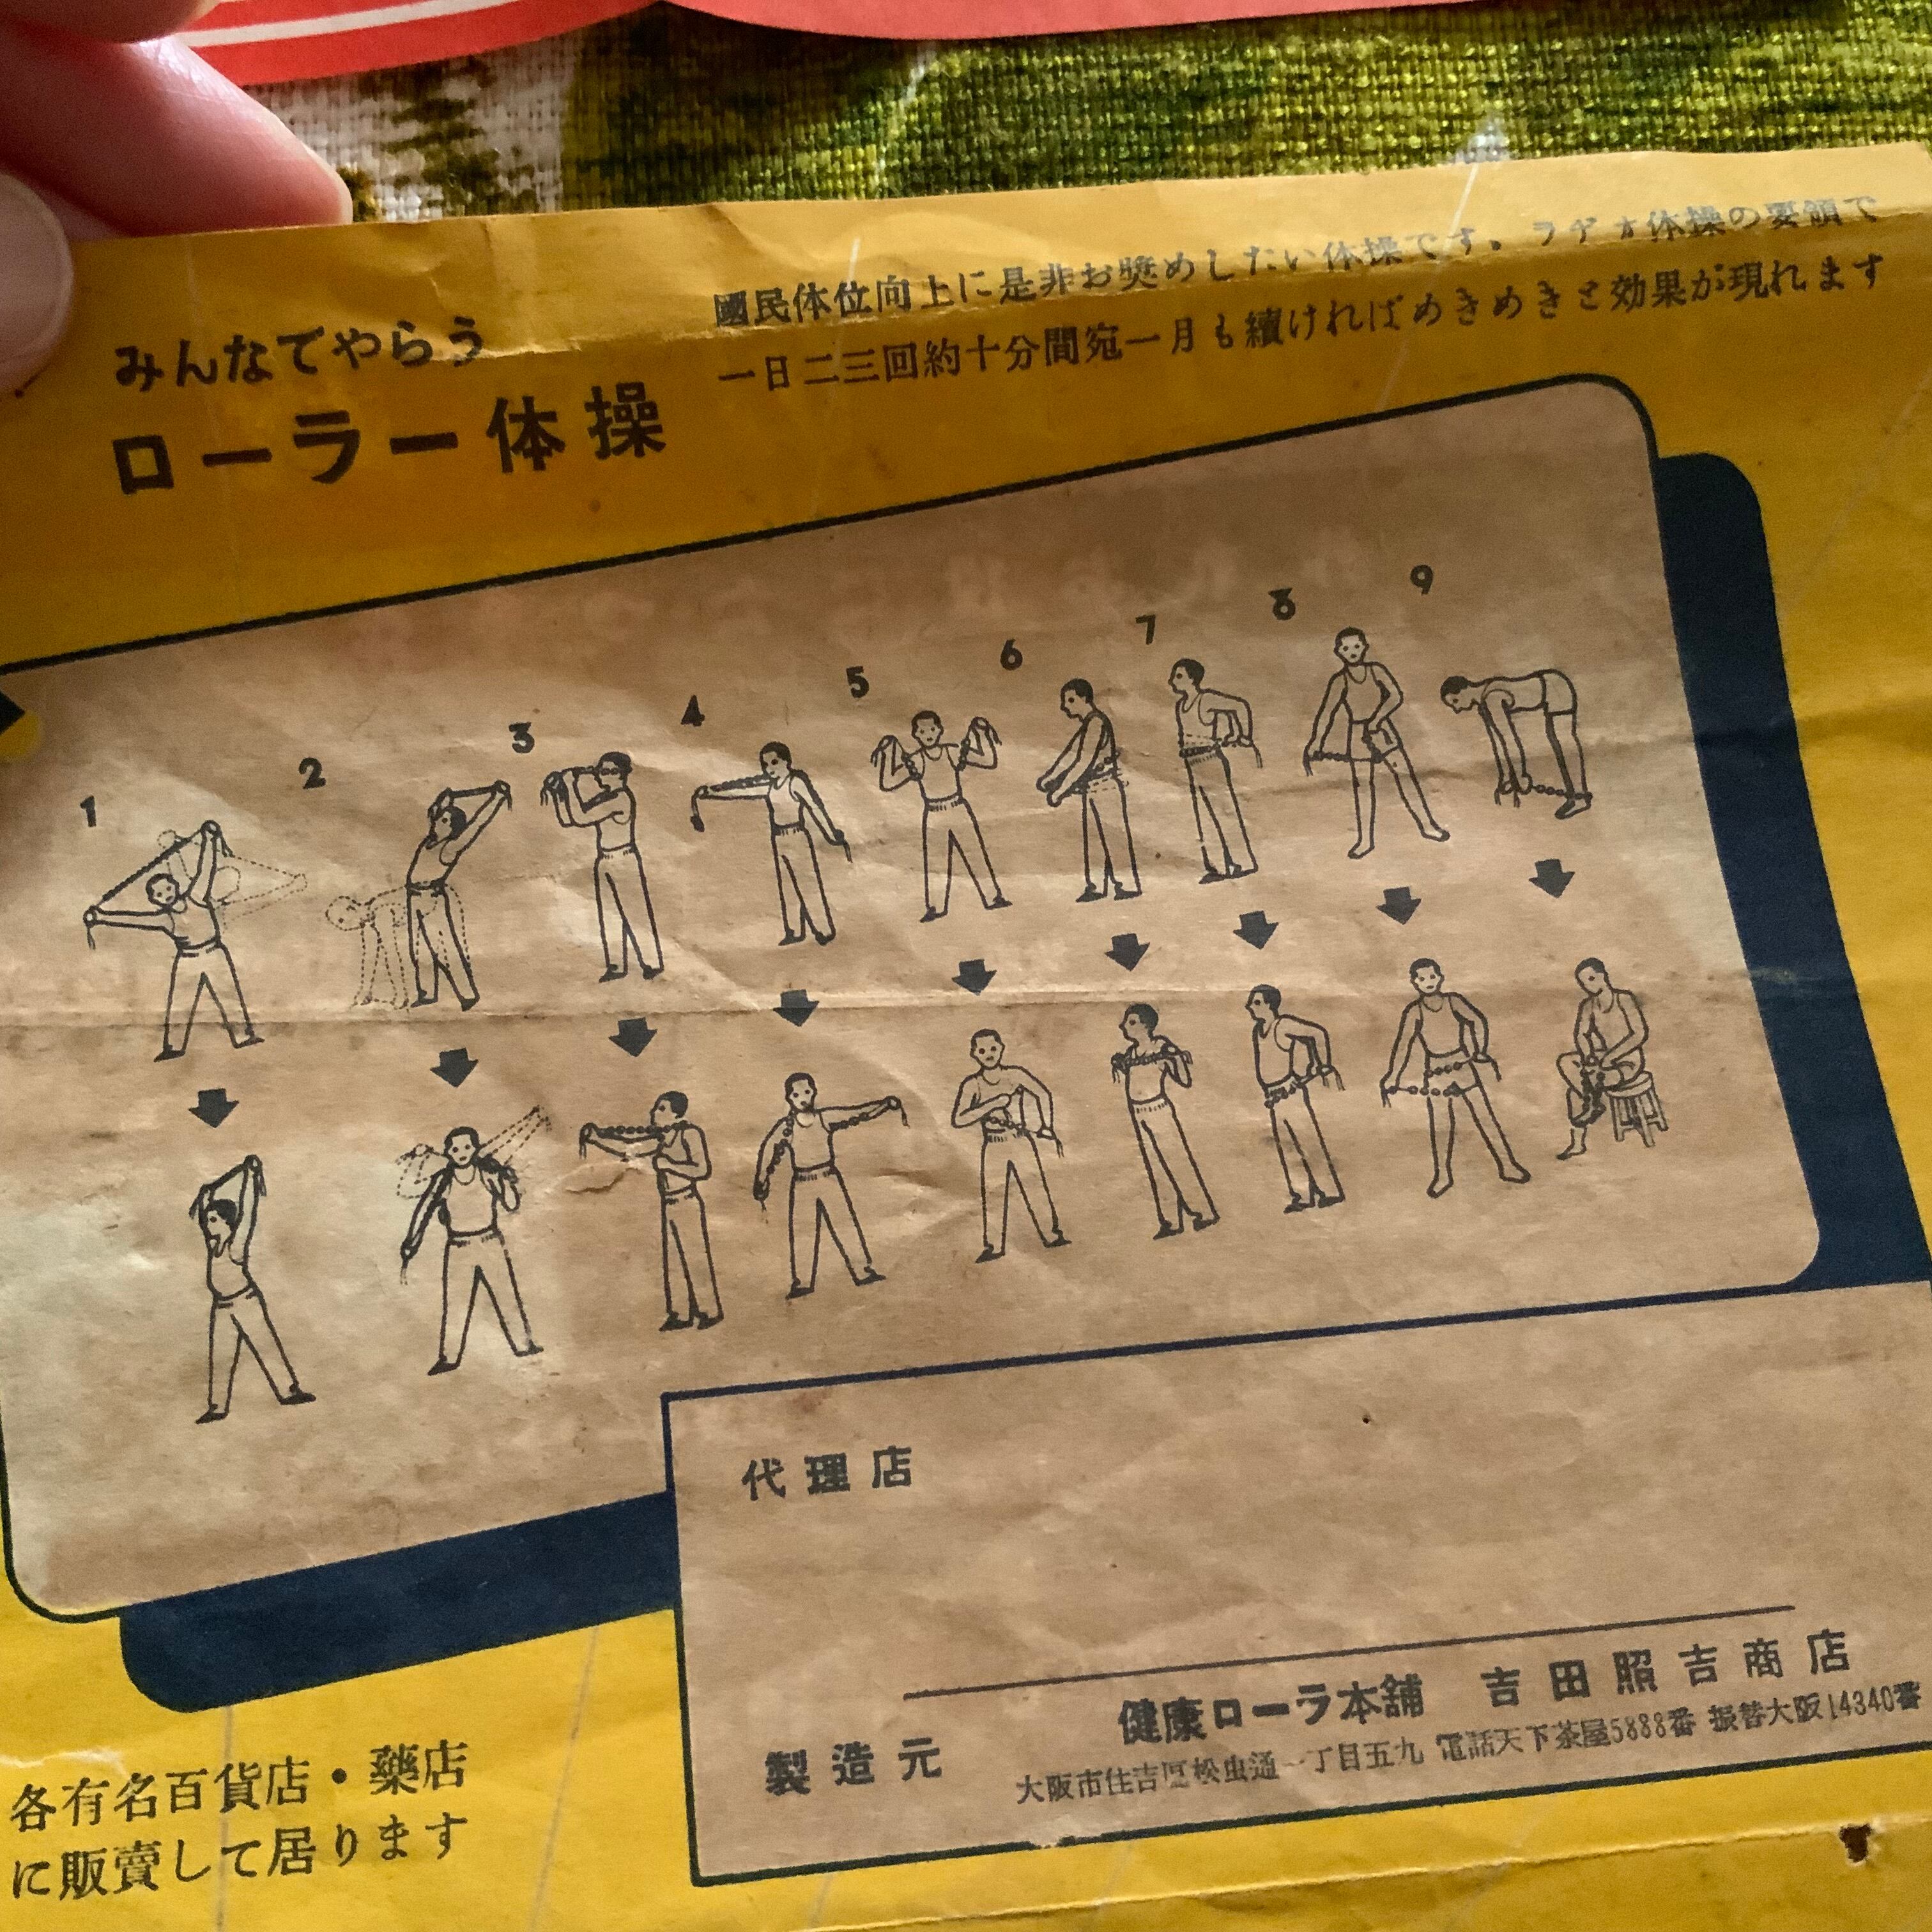 みんなでやらう
ローラー体操
國民体位向上に是非お奬めしたい体操です。ラヂオ体操の要領で
一日二三回約十分間宛一月も續ければめきめきと効果が現れます
1
2
3
4
5
6
7
8
9
代理店
製造元
健康ローラ本舖 吉田照吉商店
大阪市住吉区松虫通一丁目五九 電話天下茶屋5888番 振替大阪14340番
各有名百貨店・藥店
に販賣して居ります